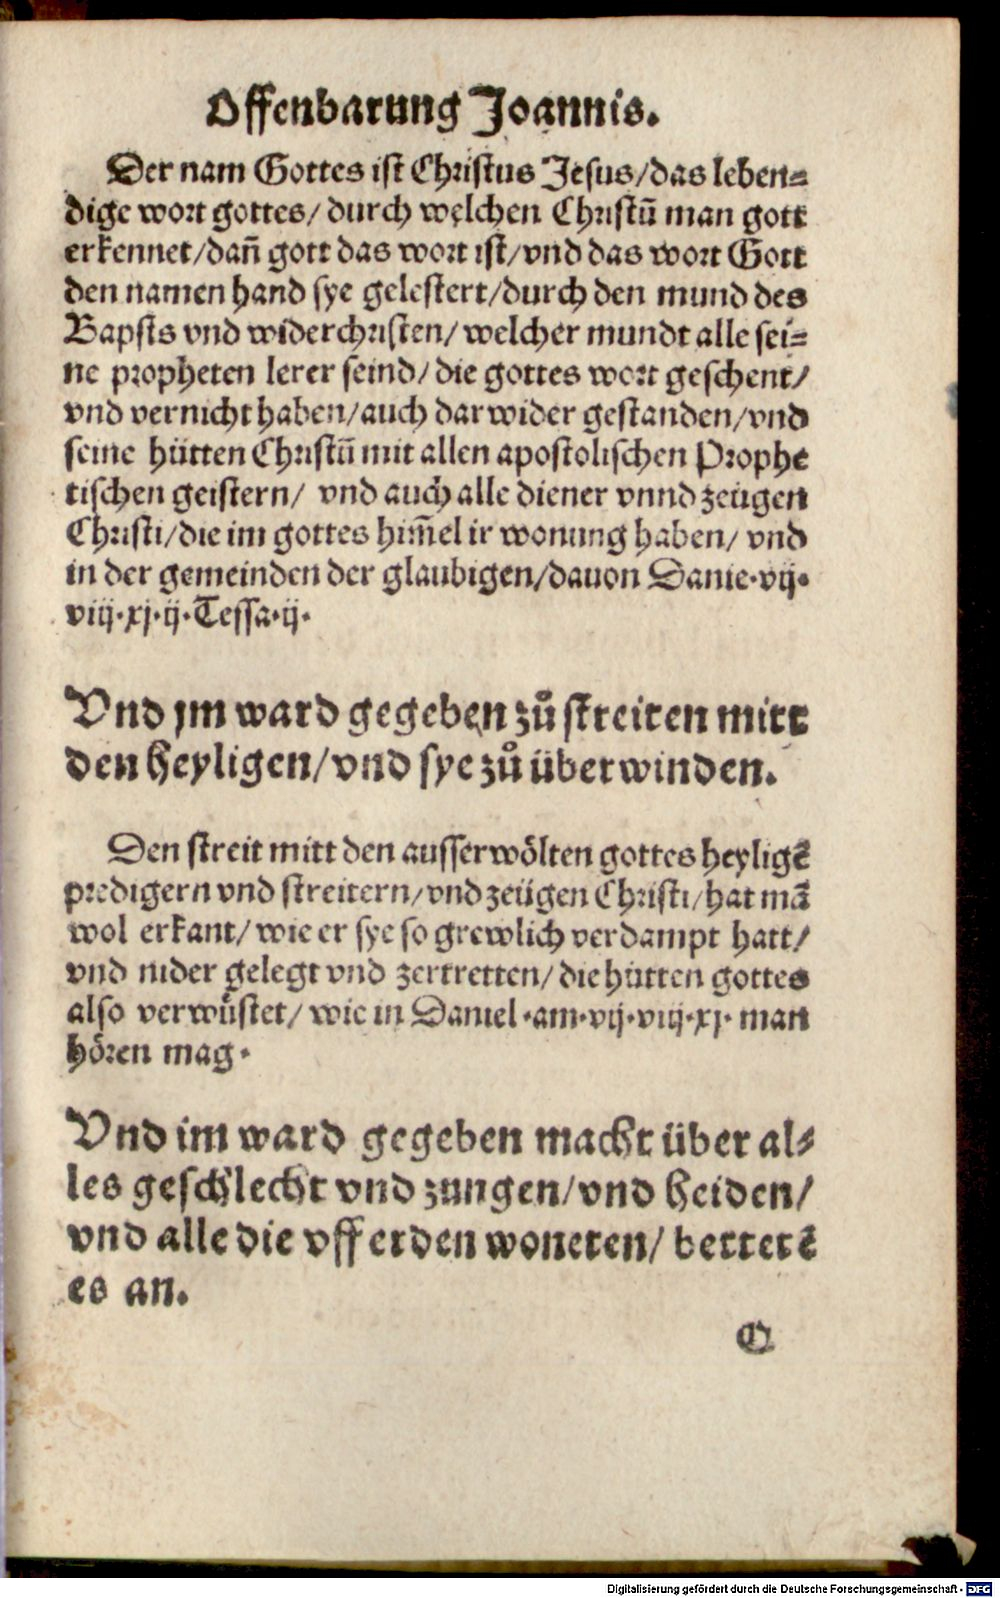 Offenbarung Joannis.
Der nam Gottes ist Christus Jesus/das leben-
dige wort gottes/ durch welchen Christū man gott
erkennet/dañ gott das wort ist/vnd das wort Gott
den namen hand sye gelestert/durch den mund des
Bapsts vnd widerchristen/ welcher mundt alle sei-
ne propheten lerer seind/ die gottes wort geschent/
vnd vernicht haben/auch darwider gestanden/vnd
seine hütten Christū mit allen apostolischen Prophe
tischen geistern/ vnd auch alle diener vnnd zeügen
Christi/die im gottes him̄el ir wonung haben/ vnd
in der gemeinden der glaubigen/dauon Danie·vij·
viij·xj·ij·Tessa·ij·
Vnd jm ward gegeben zů streiten mitt
den heyligen/vnd sye zů überwinden.
Den streit mitt den ausserwölten gottes heyligē
predigern vnd streitern/vnd zeügen Christi/hat mā
wol erkant/ wie er sye so grewlich verdampt hatt/
vnd nider gelegt vnd zertretten/ die hütten gottes
also verwüstet/ wie in Daniel·am·vij·viij·xj· man
hören mag·
Vnd im ward gegeben macht über al-
les geschlecht vnd zungen/vnd heiden/
vnd alle die vff erden woneten/ bettetē
es an.
O
Digitalisierung gefördert durch die Deutsche Forschungsgemeinschaft - DFG